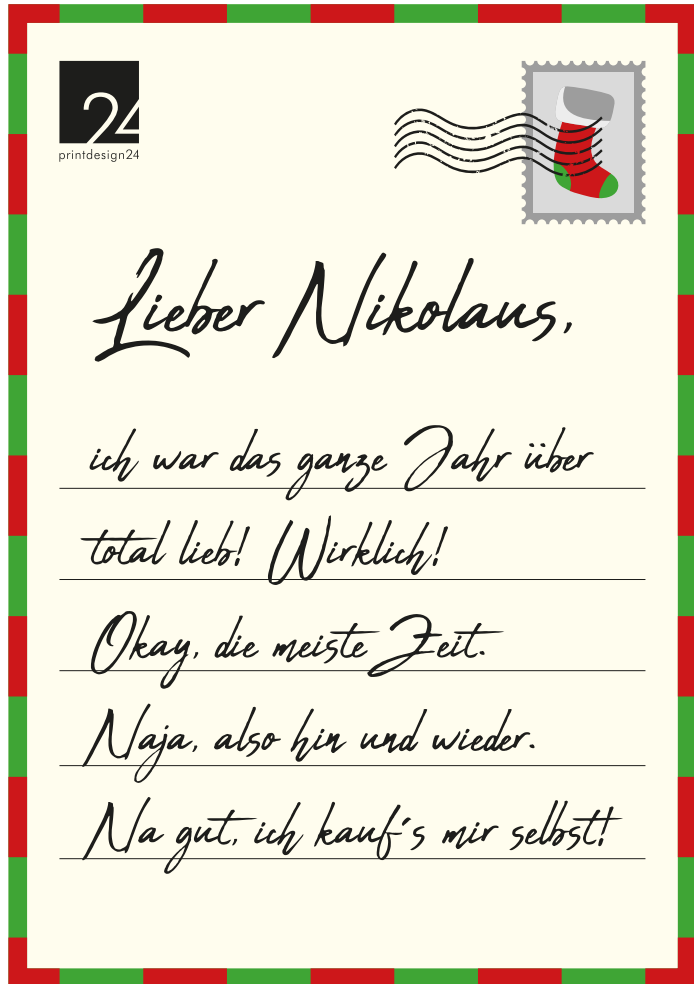 24
printdesign24
Lieber Nikolaus,
ich war das ganze Jahr über
total lieb! Wirklich!
Okay, die meiste Zeit.
Naja, also hin und wieder.
Na gut, ich kauf´s mir selbst!